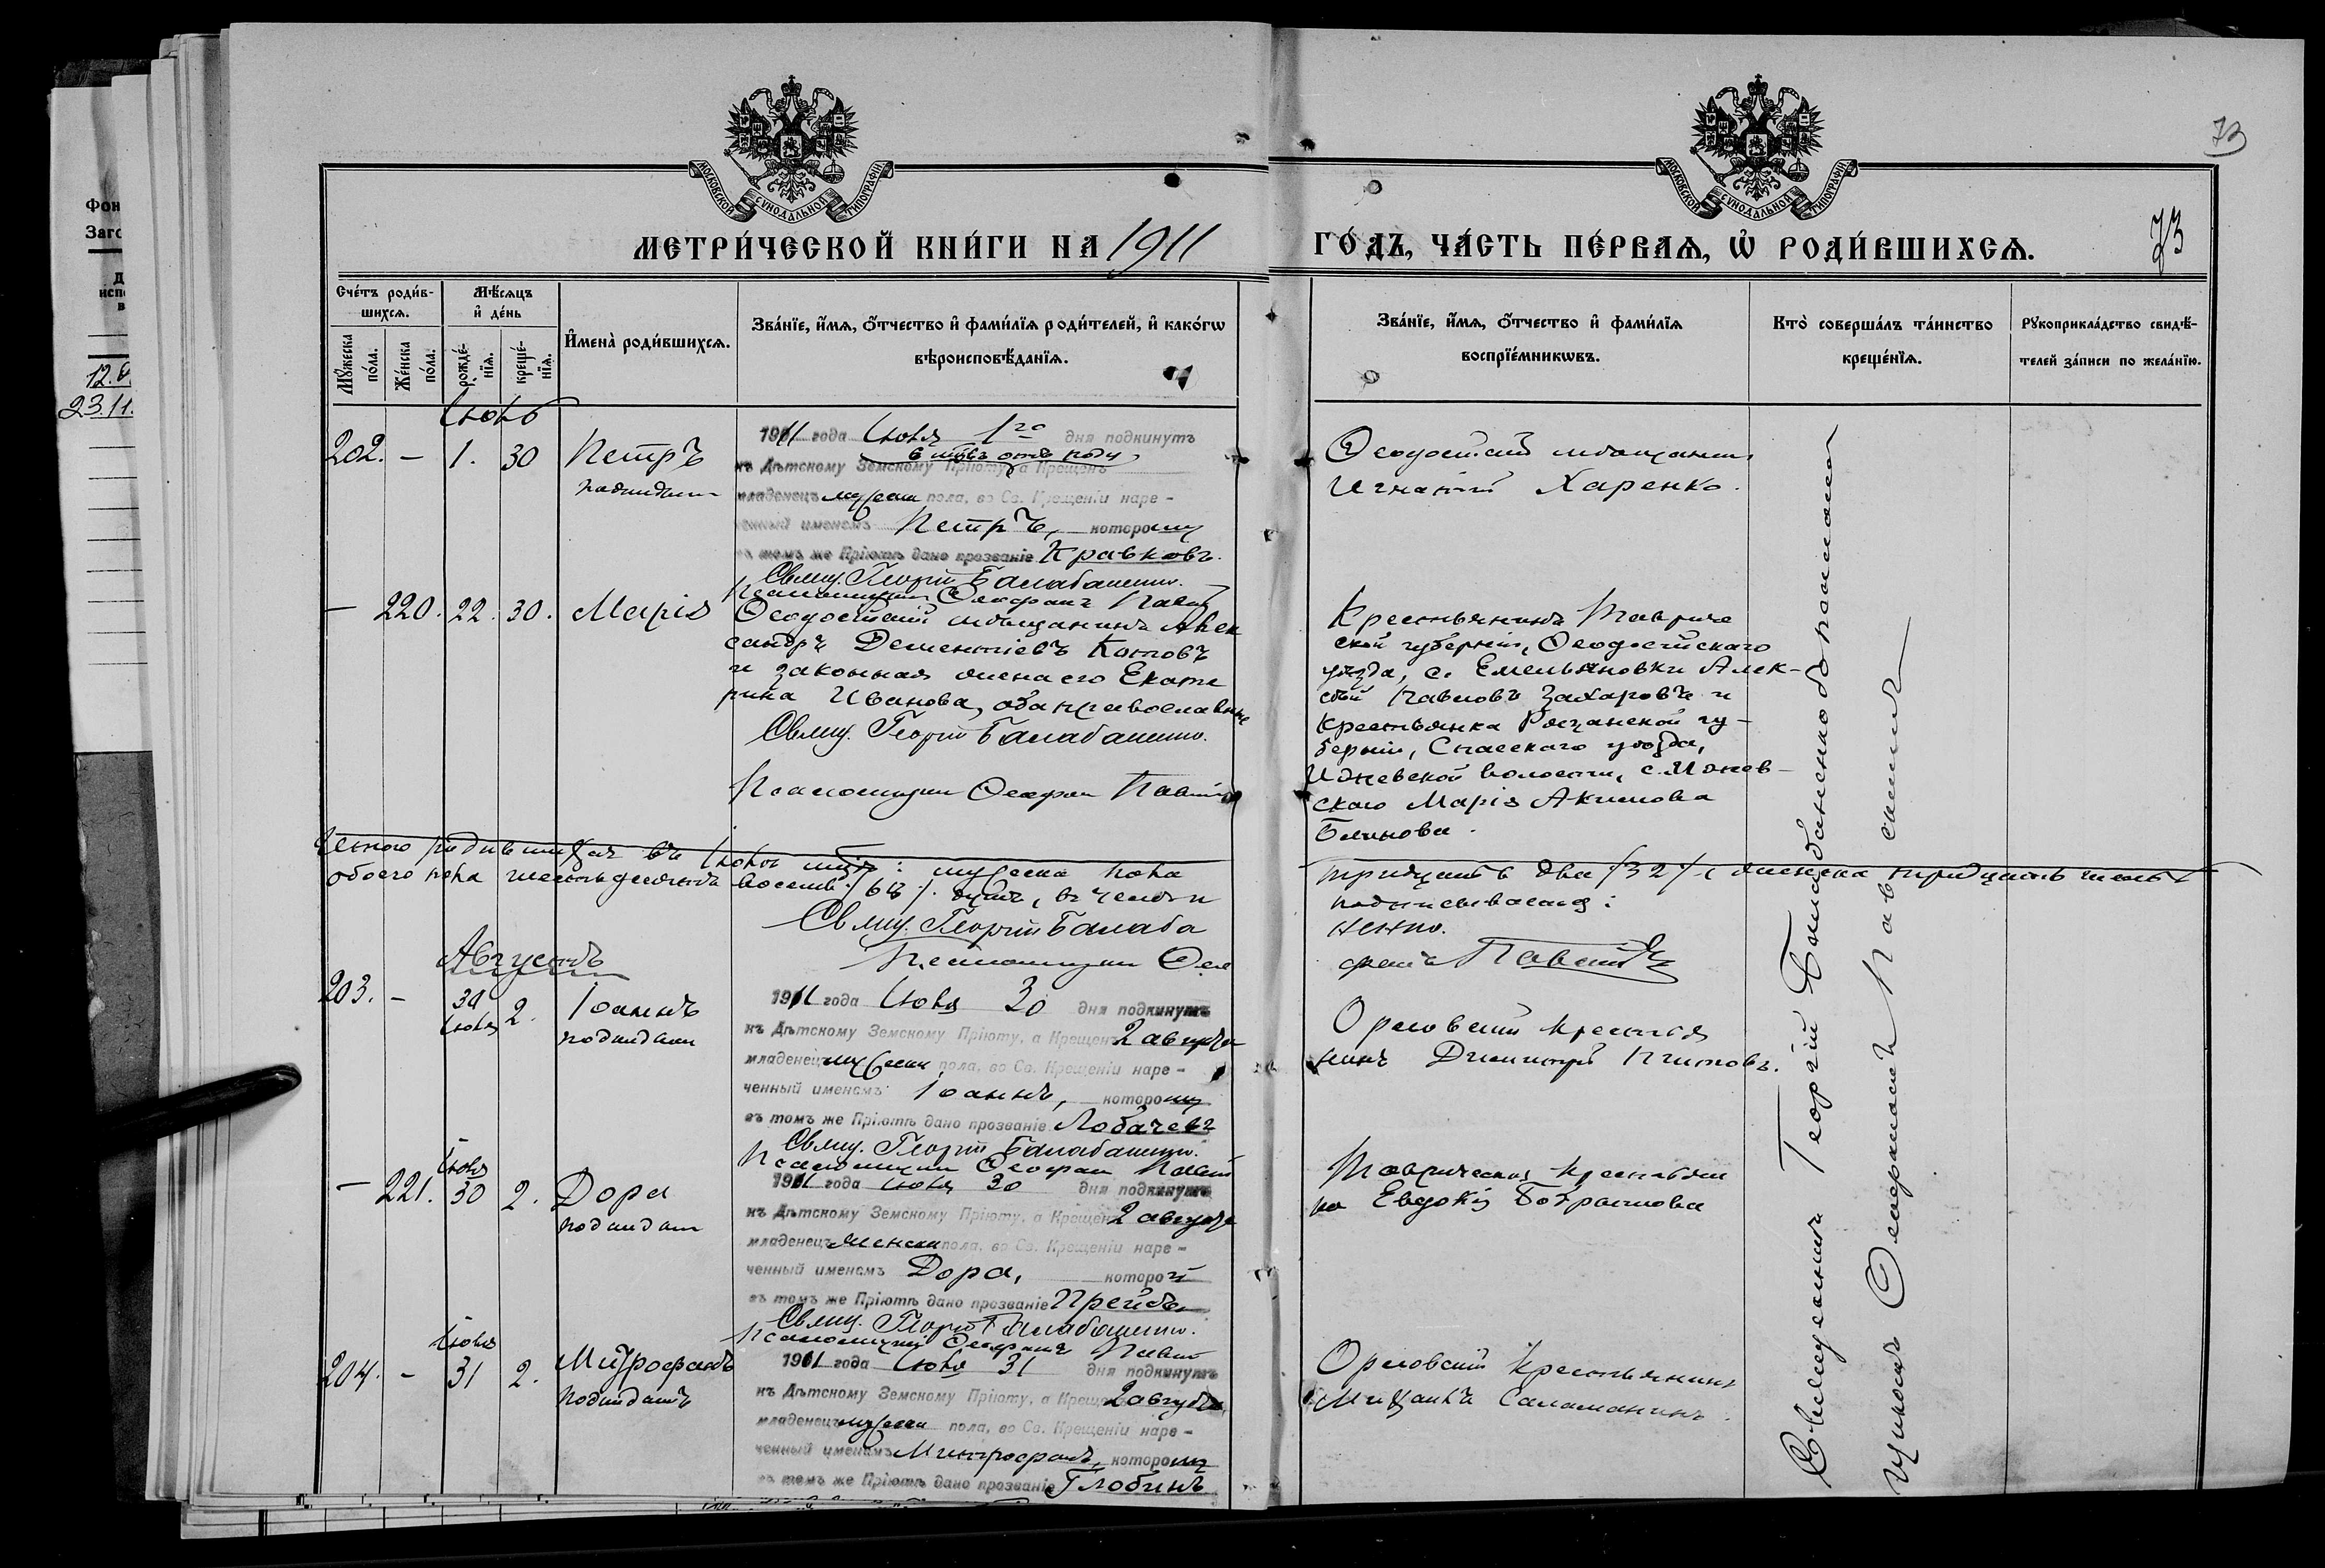 73
МОСКОВСКОЙ СѴНОДАЛЬНОЙ ТИПОГРАФІИ
МОСКОВСКОЙ СѴНОДАЛЬНОЙ ТИПОГРАФІИ
МЕТРИ́ЧЕСКОЙ КНИ́ГИ НА 1911
ГО́ДЪ, ЧА́СТЬ ПЕ́РВАѦ, Ѡ҆ РОДИ́ВШИХСѦ.
73
Счéтъ роди́в-
шихсѧ.
Мѣ́сѧцъ
и҆ дéнь
Мꙋ́жеска
по́ла.
Жéнска
по́ла.
рождé-
нїѧ.
крещé-
нїѧ.
И҆мена̀ роди́вшихсѧ.
Звáнїе, и҆́мѧ, ѻ҆́тчество и҆ фами́лїѧ роди́телей, и҆ како́гѡ
вѣроисповѣ́данїѧ.
Звáнїе, и҆́мѧ, ѻ҆́тчество и҆ фами́лїѧ
воспрїе́мникѡвъ.
Кто̀ соверша́лъ та́инство
креще́нїѧ.
Рꙋкоприкла́дство свидѣ́-
телей за́писи по жела́нїю.
Фон
Заго
12.
23.11.
Іюль
202. – 1. 30 Петръ
подкидыш
1911 года Іюля 1го дня подкинутъ
къ Дѣтскому Земскому Пріюту, а Крещенъ
младенецъ мужеск пола, во Св. Крещеніи наре-
ченный именемъ Петръ, которому
въ томъ же Пріютѣ дано прозваніе Кравковъ.
Свящ. Георгій Балабаненко.
Псаломщикъ Ѳеофанъ Павл
Ѳеодосійскій мѣщанинъ
Игнатій Харенко.
– 220. 22. 30. Марія
Ѳеодосійскій мѣщанинъ Алек
сандръ Дементіевъ Котовъ
и законная жена его Екате
рина Иванова, оба православные
Свящ. Георгій Балабаненко.
Псаломщикъ Ѳеофан
Крестьянинъ Тавриче
ской губерніи, Ѳеодосійскаго
уѣзда, с. Емельяновки Алек-
сѣй Павловъ Захаровъ и
крестьянка Рязанской гу-
берніи, Спасскаго уѣзда,
Ижевской волости, с. Ижев-
скаго Марія Акимова
Блинова.
родившихся въ Іюлѣ мѣс: мужеска пола
тридцать два /32/, женска тридцать шесть
обоего пола шестьдесятъ восемь /68/ душъ, въ чемъ и
подписываемся:
Свящ. Георгій Балаба
ненко.
Псаломщикъ Ѳео
фанъ
Августъ
203. – 30 Іюля 2. Іоаннъ
подкидыш
1911 года Іюля 30 дня подкинутъ
къ Дѣтскому Земскому Пріюту, а Крещенъ 2 августа
младенецъ мужеск пола, во Св. Крещеніи наре-
ченный именемъ Іоаннъ, которому
въ томъ же Пріютѣ дано прозваніе Лобачевъ
Свящ. Георгій Балабаненко.
Псаломщикъ Ѳеофан
Орловскій крестья
нинъ Димитрій
– 221. Іюля 30 2. Дора
подкидыш
1911 года Іюля 30 дня подкинутъ
къ Дѣтскому Земскому Пріюту, а Крещенъ 2 августа
младенецъ женск пола, во Св. Крещеніи наре-
ченный именемъ Дора, которой
въ томъ же Пріютѣ дано прозваніе
Свящ. Георгій Балабаненко.
Псаломщикъ Ѳеофанъ
Таврическая крестьян
ка Евдокія
204. – Іюля 31 2. Митрофанъ
подкидышъ
1911 года Іюля 31 дня подкинутъ
къ Дѣтскому Земскому Пріюту, а Крещенъ 2 августа
младенецъ мужеск пола, во Св. Крещеніи наре-
ченный именемъ Митрофанъ, которому
въ томъ же Пріютѣ дано прозваніе Глобинъ
Орловскій крестьянинъ
Михаилъ Саламатинъ.
Священникъ Георгій Балабаненко
Ѳеофанъ